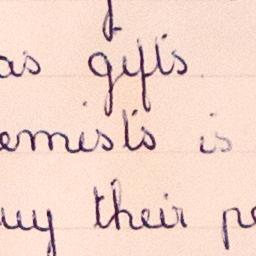 as gifts
emists is
uy their pe